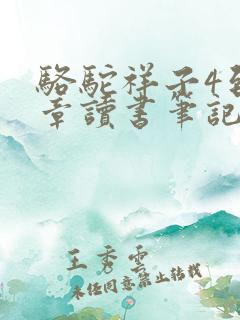 駱駝祥子4到
章讀書筆記
王秀雲
未經同意禁止轉載